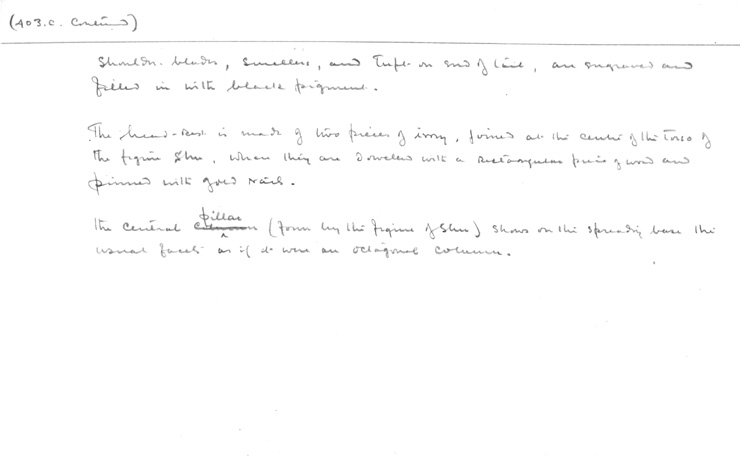 (403.c. Continued)
shoulder-blades, smellers, and tuft on end of tail, are engraved and
filled in with black pigment.
The head-rest is made of two pieces of ivory, joined at the centre of the torso of
the figure Shu, where they are dowelled with a rectangular piece of wood and
pinned with gold nails.
The central column pillar (form by the figure of Shu) shows on the spreading base the
usual facets as if it were an octagonal column.